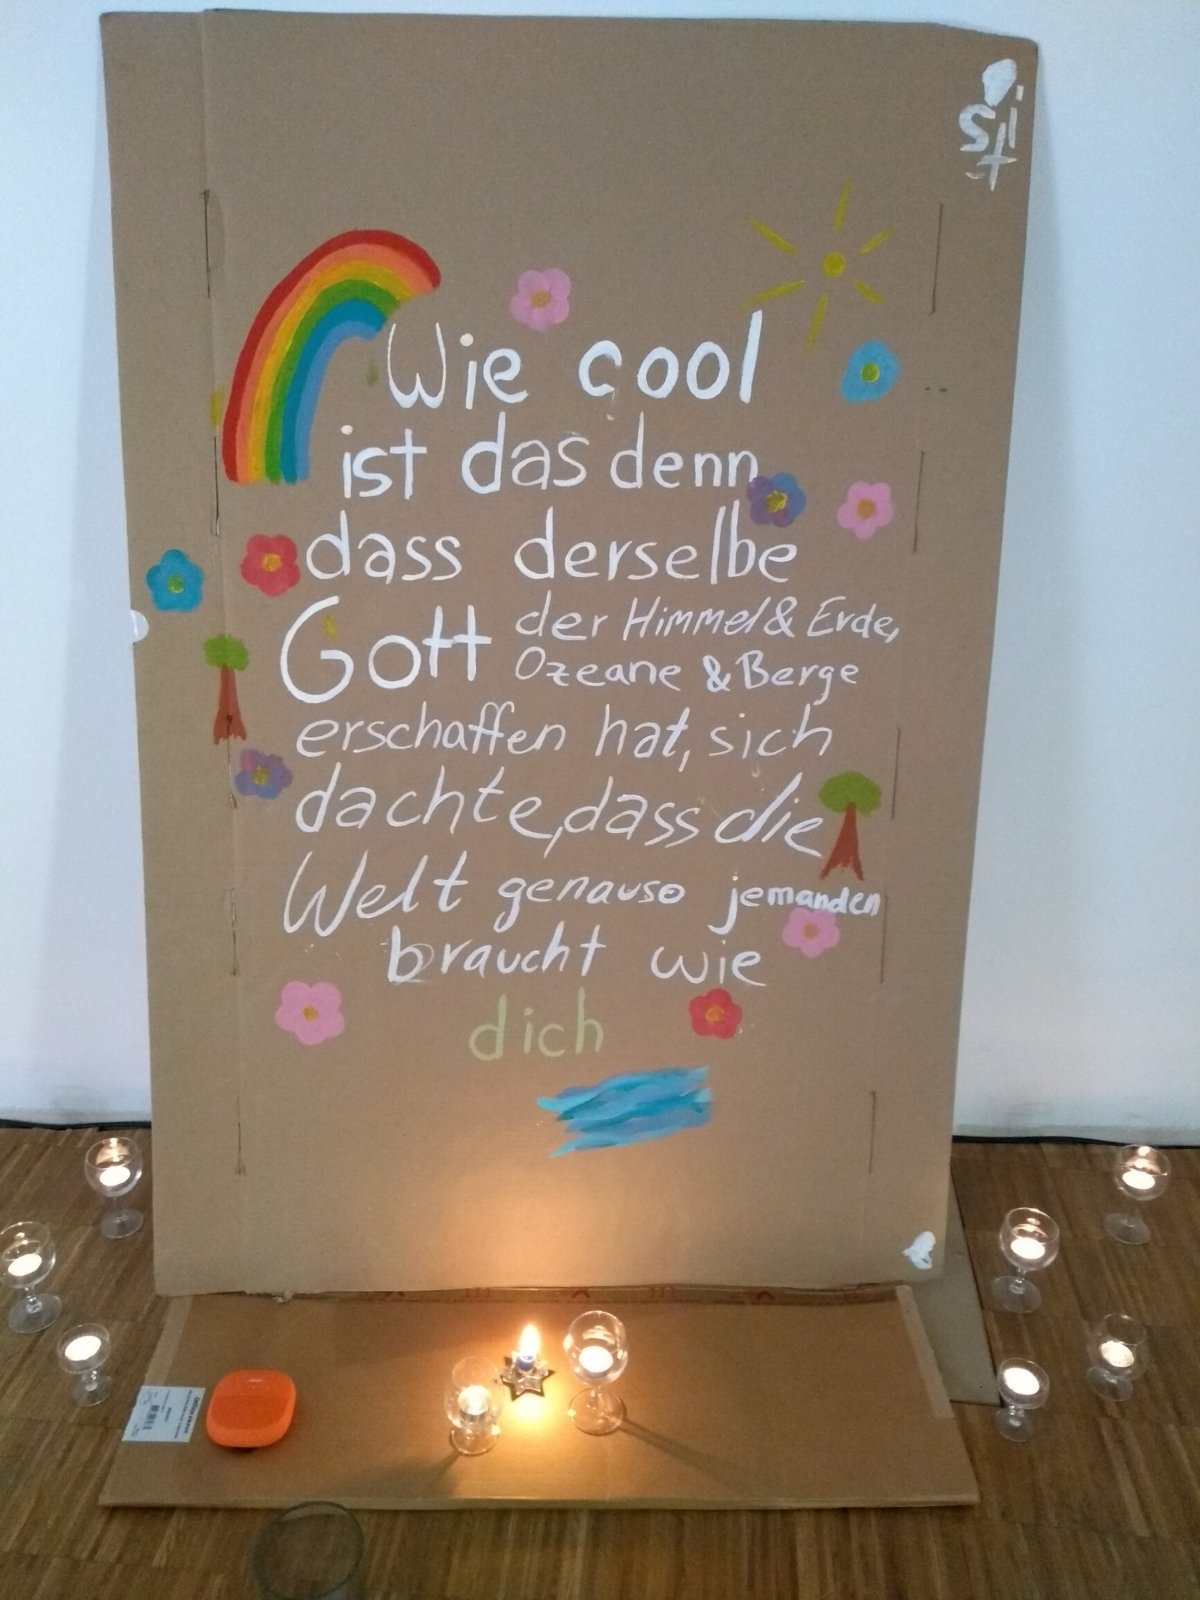 Wie cool
ist das denn
dass derselbe
Gott der Himmel & Erde,
Ozeane & Berge
erschaffen hat, sich
dachte, dass die
Welt genauso jemanden
braucht wie
dich